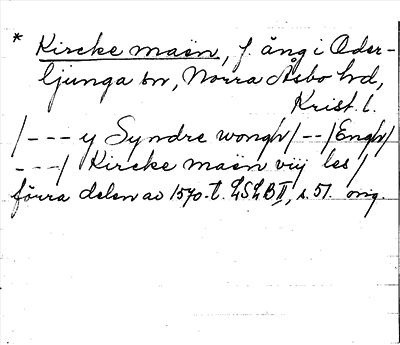 * Kircke maën, f. äng i Oder-
ljunga sn, Norra Åsbo hd,
Krist. l.
/--- y Syndre wongh/--/Engh/
---/ Kircke maën vij les /
förra delen av 1570-t. LSLB II, s. 51. orig.